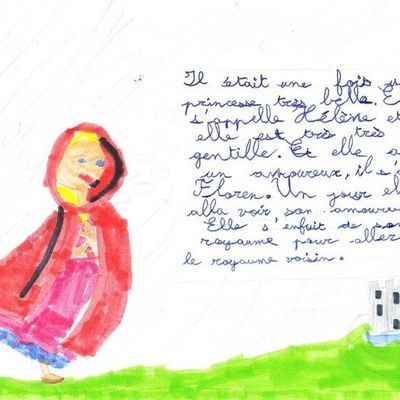 Il était une fois
princesse très belle.
s'appelle Hélène et
elle est très très
gentille. Et elle a
un amoureux, il s'
Floren. Un jour
alla voir son amoureu
Elle s'enfuit de son
royaume pour aller
le royaume voisin.